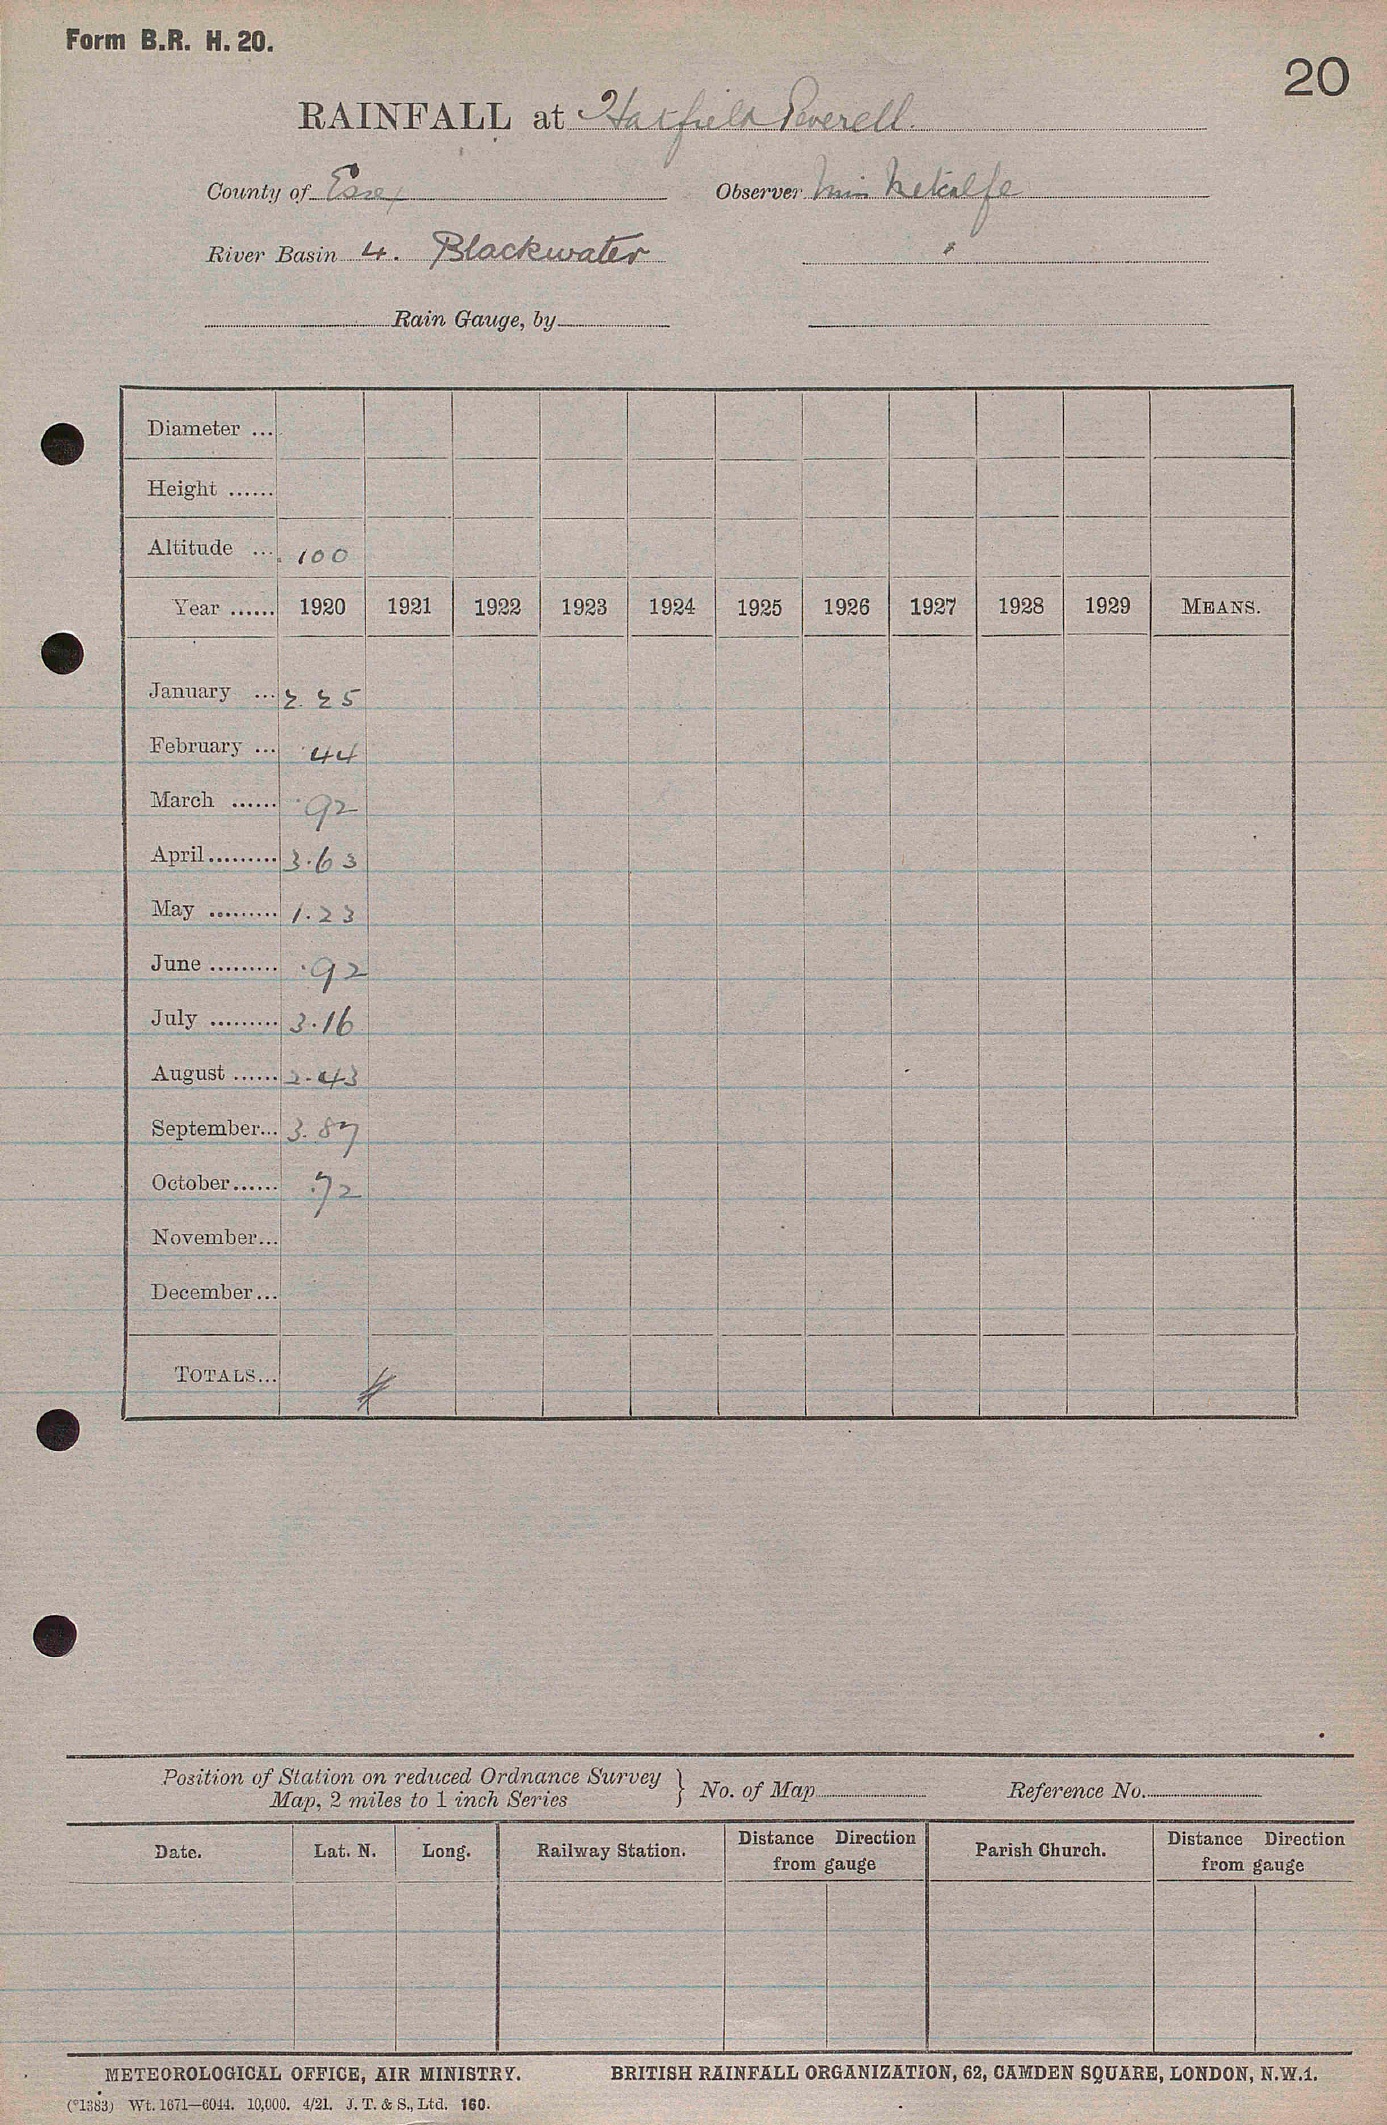 Form B.R. H. 20.
20
RAINFALL at Hatfield Peverell.
County of Essex Observer Miss Metcalfe
River Basin 4. Blackwater
Rain Gauge, by
Diameter ...
Height ......
Altitude ... 100
Year ...... 1920 1921 1922 1923 1924 1925 1926 1927 1928 1929 MEANS.
January ... 2.25
February ... .44
March ...... .92
April......... 3.63
May ......... 1.23
June ......... .92
July ......... 3.16
August ...... 2.43
September... 3.87
October...... .72
November...
December...
TOTALS...
Position of Station on reduced Ordnance Survey
Map, 2 miles to 1 inch Series } No. of Map Reference No.
Date. Lat. N. Long. Railway Station. Distance Direction from gauge Parish Church. Distance Direction from gauge
METEOROLOGICAL OFFICE, AIR MINISTRY. BRITISH RAINFALL ORGANIZATION, 62, CAMDEN SQUARE, LONDON, N.W.1.
(*1383) Wt. 1671—6044. 10,000. 4/21. J. T. & S., Ltd. 160.